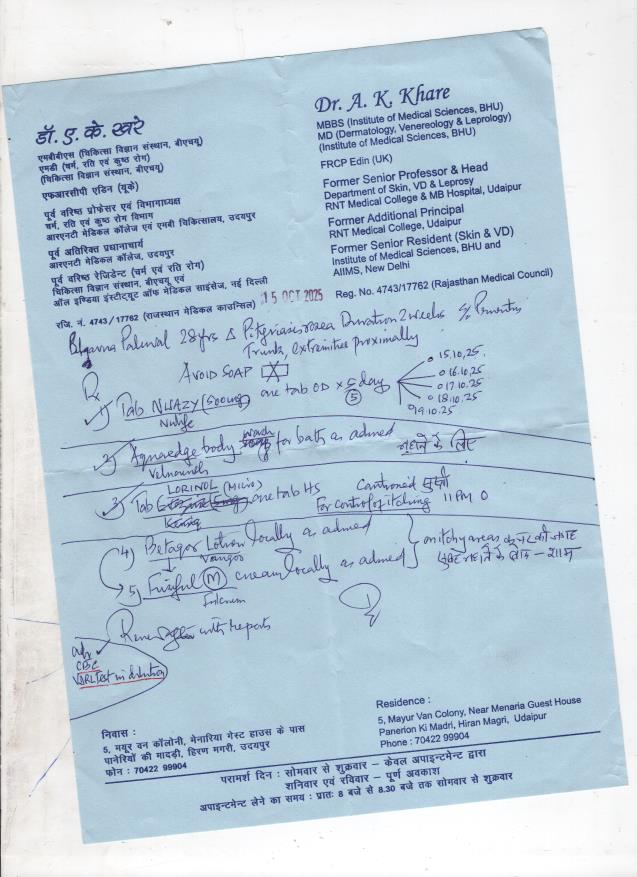 डॉ. ए. के. खरे
एमबीबीएस (चिकित्सा विज्ञान संस्थान, बीएचयू)
एमडी (चर्म, रति एवं कुष्ठ रोग)
(चिकित्सा विज्ञान संस्थान, बीएचयू)
एफआरसीपी एडिन (यूके)
पूर्व वरिष्ठ प्रोफेसर एवं विभागाध्यक्ष
चर्म, रति एवं कुष्ठ रोग विभाग
आरएनटी मेडिकल कॉलेज एवं एमबी चिकित्सालय, उदयपुर
पूर्व अतिरिक्त प्रधानाचार्य
आरएनटी मेडिकल कॉलेज, उदयपुर
पूर्व वरिष्ठ रेजिडेन्ट (चर्म एवं रति रोग)
चिकित्सा विज्ञान संस्थान, बीएचयू एवं
ऑल इण्डिया इंस्टीट्यूट ऑफ मेडिकल साइंसेज, नई दिल्ली
रजि. नं. 4743/17762 (राजस्थान मेडिकल काउन्सिल)
Dr. A. K. Khare
MBBS (Institute of Medical Sciences, BHU)
MD (Dermatology, Venereology & Leprology)
(Institute of Medical Sciences, BHU)
FRCP Edin (UK)
Former Senior Professor & Head
Department of Skin, VD & Leprosy
RNT Medical College & MB Hospital, Udaipur
Former Additional Principal
RNT Medical College, Udaipur
Former Senior Resident (Skin & VD)
Institute of Medical Sciences, BHU and
AIIMS, New Delhi
Reg. No. 4743/17762 (Rajasthan Medical Council)
15 OCT 2025
Paliwal 28yrs Δ Pityriasis rosea Duration 2 weeks
Trunk, extremities proximally
AVOID SOAP
1) Tab NUAZY (500mg) one tab OD x 5 day
(5)
15.10.25
16.10.25
17.10.25
18.10.25
19.10.25
2) body wash for bath as advised नहाने के लिए
3) Tab LORINOL one tab HS
For control of itching 11 PM 0
4) Lotion locally as advised
5) (M) cream locally as advised } on itchy areas
with reports
adv
CBC
VDRL Test in dilution
निवास :
5, मयूर वन कॉलोनी, मेनारिया गेस्ट हाउस के पास
पानेरियों की मादड़ी, हिरण मगरी, उदयपुर
फोन : 70422 99904
Residence :
5, Mayur Van Colony, Near Menaria Guest House
Panerion Ki Madri, Hiran Magri, Udaipur
Phone : 70422 99904
परामर्श दिन : सोमवार से शुक्रवार – केवल अपाइन्टमेन्ट द्वारा
शनिवार एवं रविवार – पूर्ण अवकाश
अपाइन्टमेन्ट लेने का समय : प्रातः 8 बजे से 8.30 बजे तक सोमवार से शुक्रवार